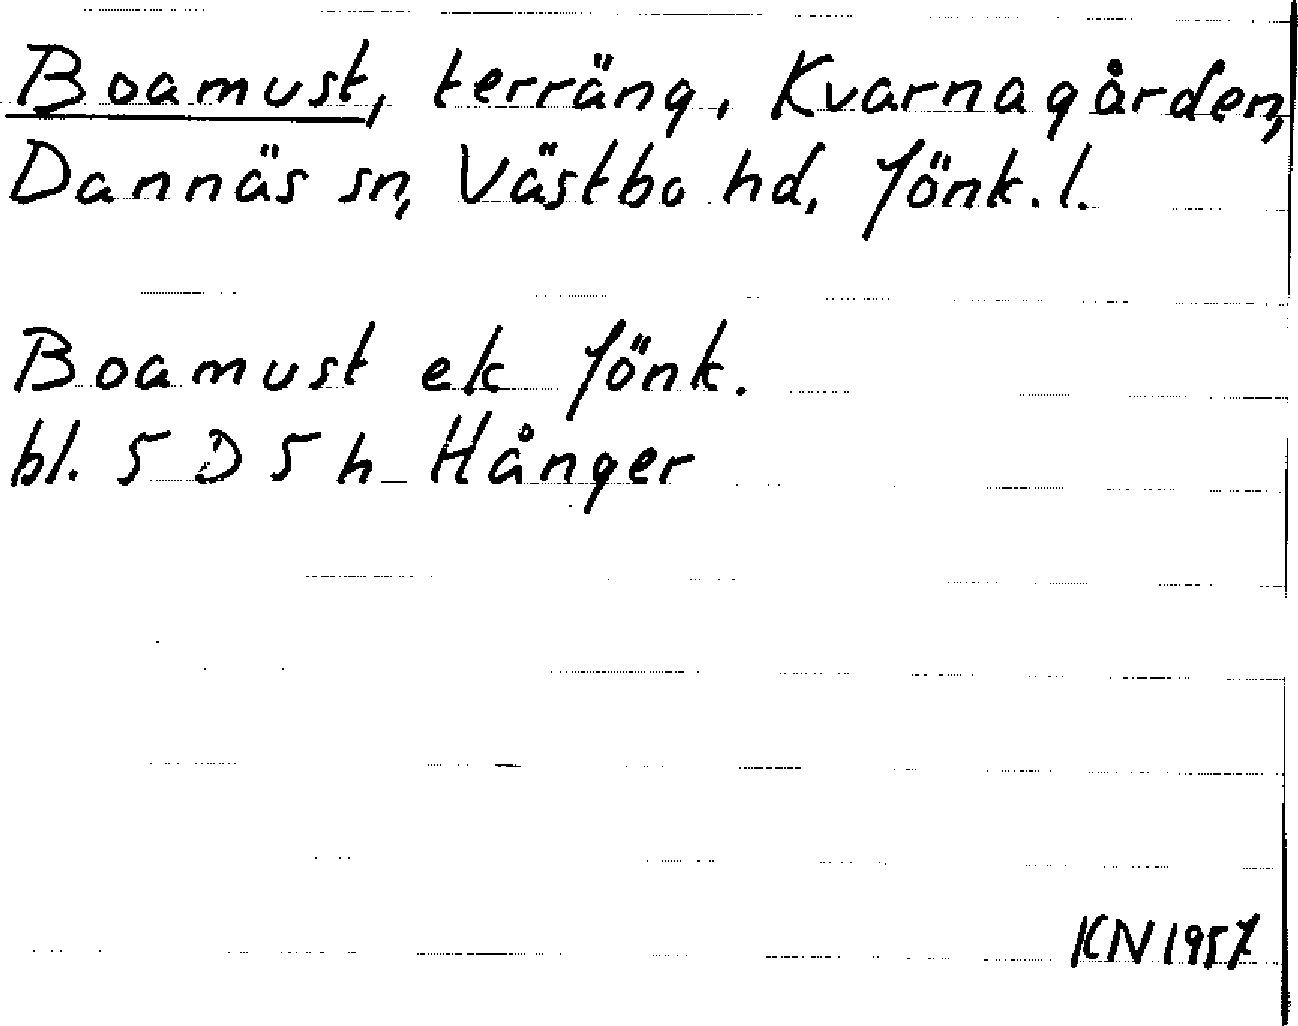 Boamust, terräng, Kvarnagården,
Dannäs sn, Västbo hd, Jönk. l.
Boamust ek Jönk.
bl. 5 D 5 h Hånger
KN 1957